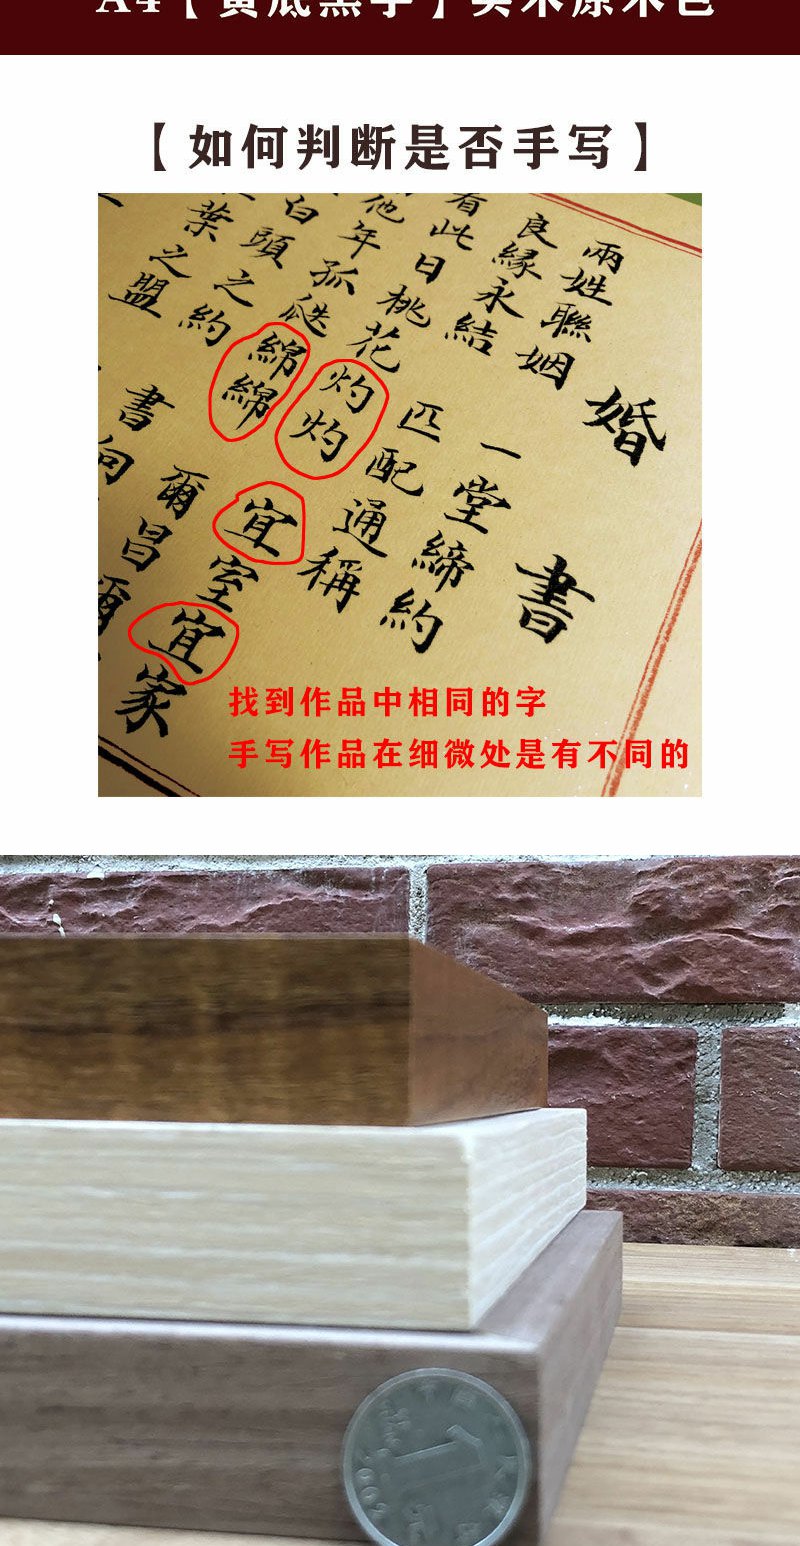 A4【黄底黑字】实木原木色
【如何判断是否手写】
婚書
兩姓聯姻一堂締約
良緣永結匹配通稱
看此日桃花灼灼宜室宜家
他年孤瓞綿綿爾昌爾
白頭之約書向
葉之盟
找到作品中相同的字
手写作品在细微处是有不同的
1